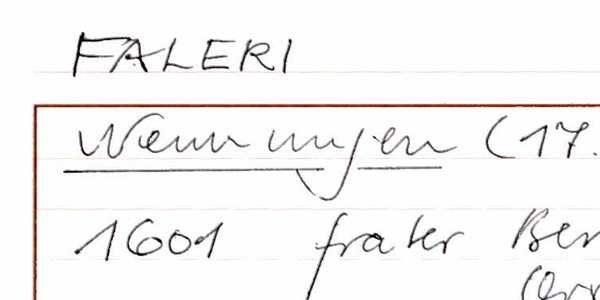 FALERI
Wennungen (17.
1601 frater Ber